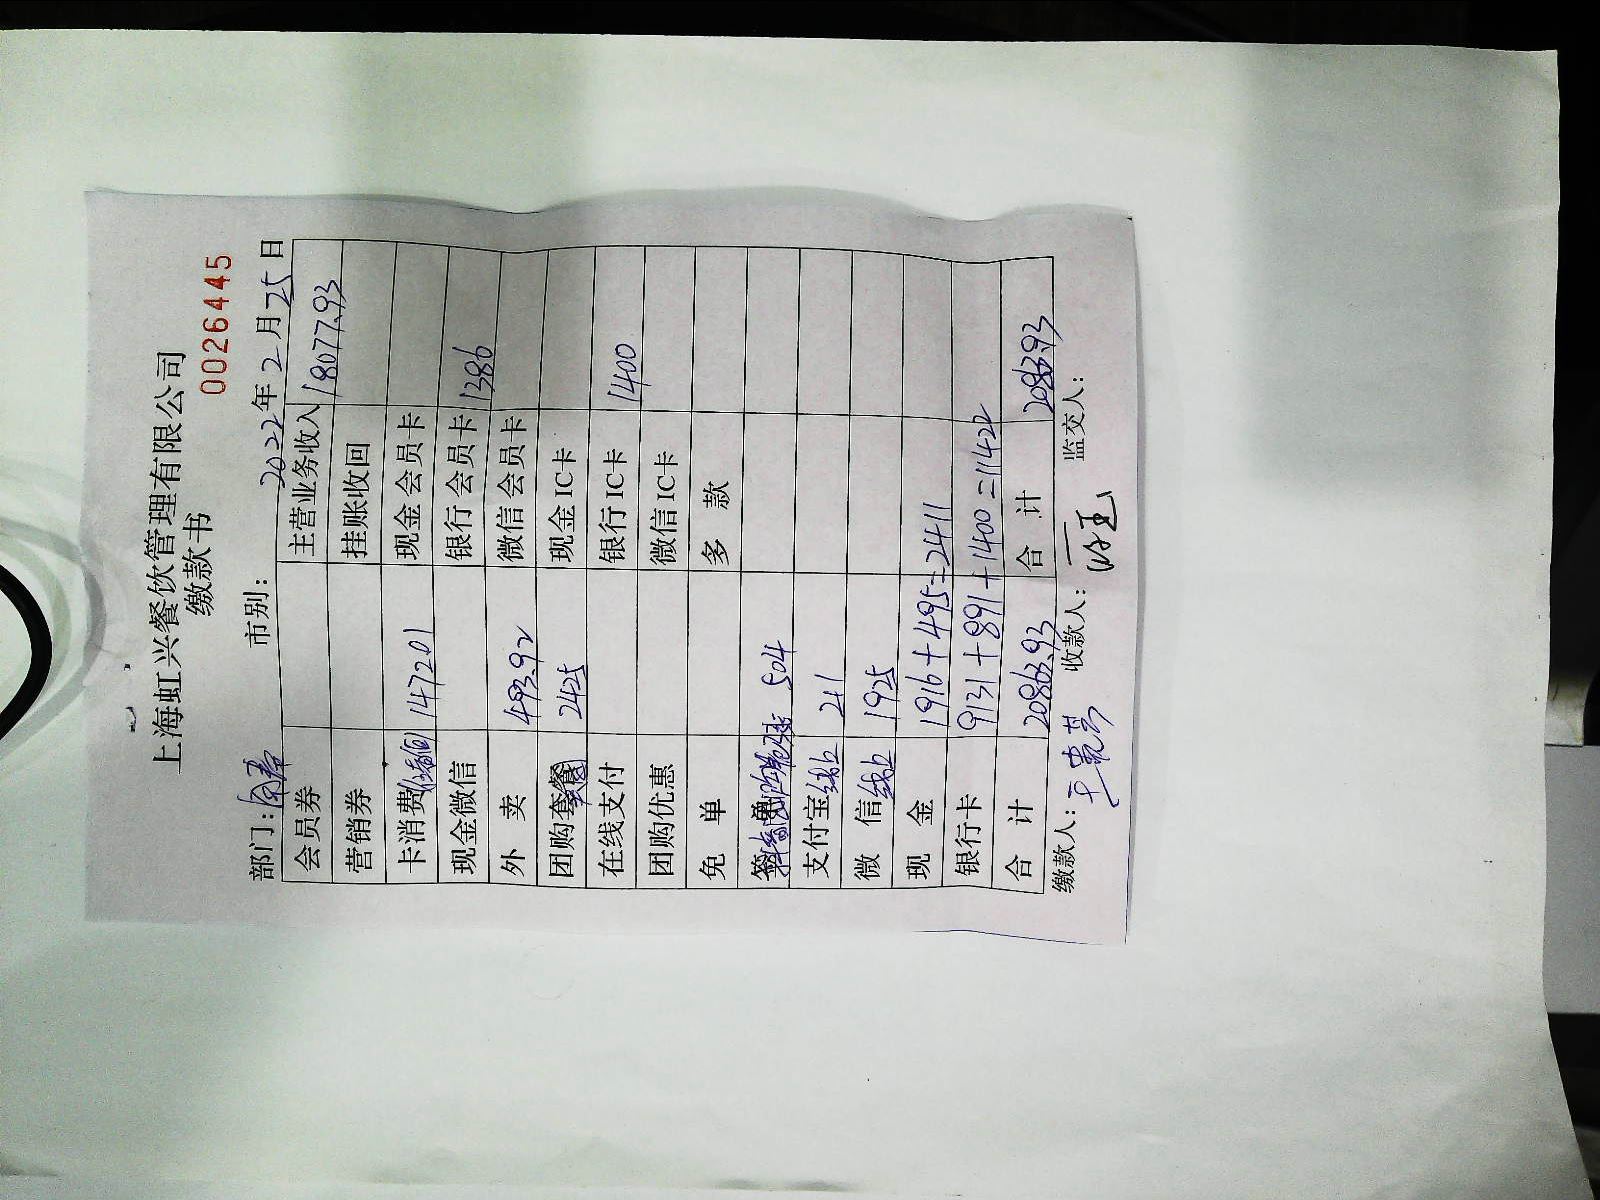 上海虹兴餐饮管理有限公司
缴款书
0026445
部门: 市别: 2022年2月25日
会员券 主营业务收入 18077.93
营销券 挂账收回
卡消费 1472.01 现金会员卡
现金微信 银行会员卡 1386
外 卖 493.92 微信会员卡
团购套餐 2425 现金IC卡
在线支付 银行IC卡 1400
团购优惠 微信IC卡
免 单 多 款
504
支付宝线上 211
微 信线上 1925
现 金 1916+495=2411
银行卡 9131+891+1400=11422
合 计 20863.93 合 计 20863.93
缴款人: 收款人: 监交人: